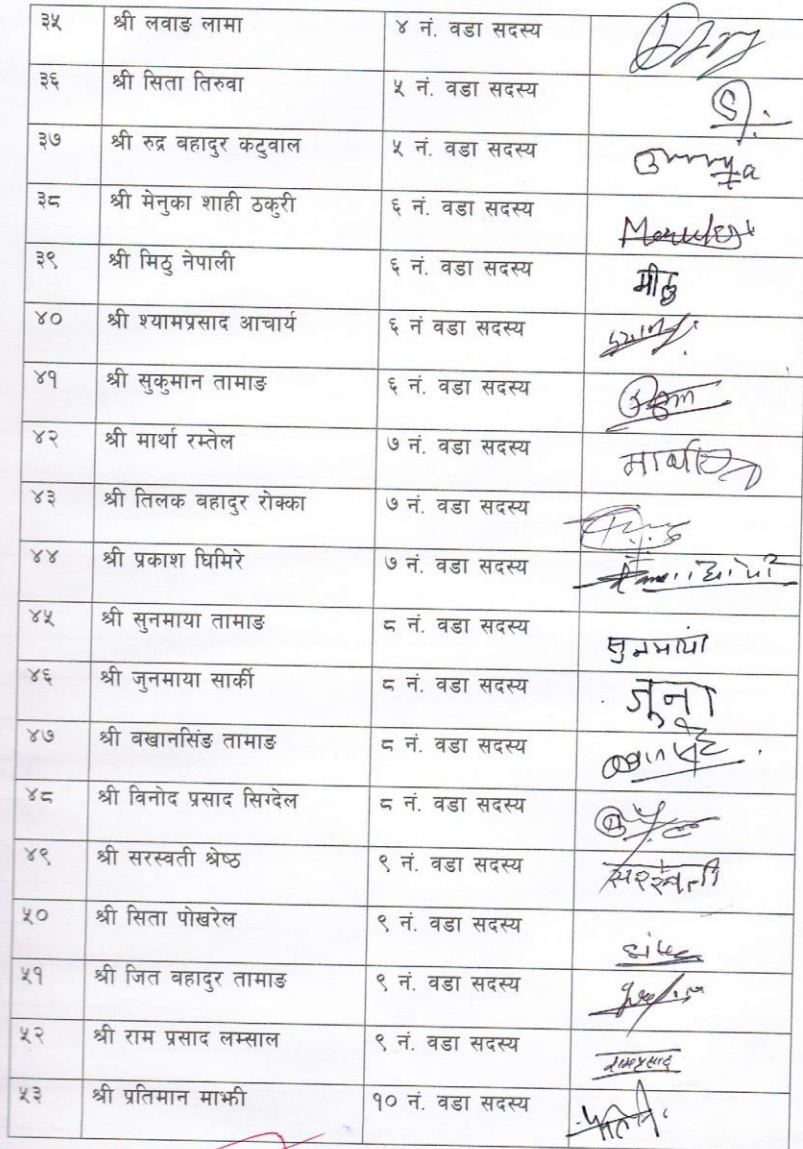 ३५ श्री लवाङ लामा ४ नं. वडा सदस्य
३६ श्री सिता तिरुवा ५ नं. वडा सदस्य
३७ श्री रुद्र बहादुर कटुवाल ५ नं. वडा सदस्य
३८ श्री मेनुका शाही ठकुरी ६ नं. वडा सदस्य
३९ श्री मिठु नेपाली ६ नं. वडा सदस्य मीठु
४० श्री श्यामप्रसाद आचार्य ६ नं वडा सदस्य
४१ श्री सुकुमान तामाङ ६ नं. वडा सदस्य
४२ श्री मार्था रम्तेल ७ नं. वडा सदस्य
४३ श्री तिलक बहादुर रोक्का ७ नं. वडा सदस्य
४४ श्री प्रकाश घिमिरे ७ नं. वडा सदस्य
४५ श्री सुनमाया तामाङ ८ नं. वडा सदस्य सुनमाया
४६ श्री जुनमाया सार्की ८ नं. वडा सदस्य जूना
४७ श्री वखानसिंङ तामाङ ८ नं. वडा सदस्य
४८ श्री विनोद प्रसाद सिग्देल ८ नं. वडा सदस्य
४९ श्री सरस्वती श्रेष्ठ ९ नं. वडा सदस्य सरस्वती
५० श्री सिता पोखरेल ९ नं. वडा सदस्य
५१ श्री जित बहादुर तामाङ ९ नं. वडा सदस्य
५२ श्री राम प्रसाद लम्साल ९ नं. वडा सदस्य रामप्रसाद
५३ श्री प्रतिमान माझी १० नं. वडा सदस्य